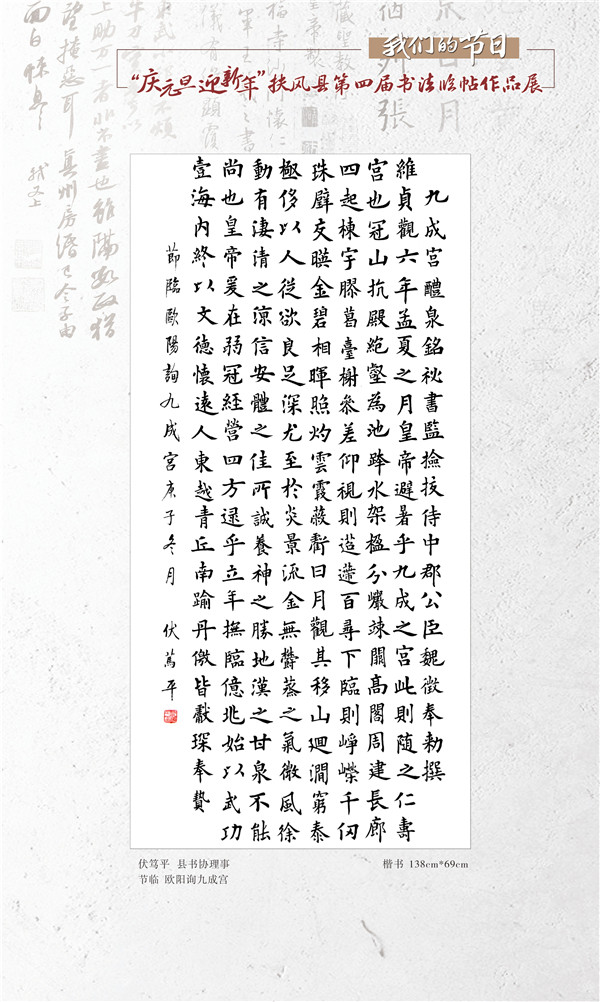 我们的节日
“庆元旦迎新年”扶风县第四届书法临帖作品展
九成宫醴泉銘秘書監撿挍侍中郡公臣魏徵奉勅撰
維貞觀六年孟夏之月皇帝避暑乎九成之宮此則随之仁壽
宮也冠山抗殿絶壑為池跨水架楹分巖竦闕高閣周建長廊
四起棟宇膠葛臺榭叅差仰視則迢遰百尋下臨則崢嶸千仞
珠璧交暎金碧相暉照灼雲霞蔽虧日月觀其移山廻澗窮泰
極侈以人従欲良足深尤至於炎景流金無欝蒸之氣微風徐
動有淒清之涼信安體之佳所誠養神之勝地漢之甘泉不能
尚也皇帝爰在弱冠経營四方逯乎立年撫臨億兆始以武功
壹海內終以文德懷遠人東越青丘南踰丹儌皆獻琛奉贄
節臨歐陽詢九成宮庚子冬月 伏篤平
伏笃平 县书协理事
节临 欧阳询九成宫
楷书 138cm*69cm